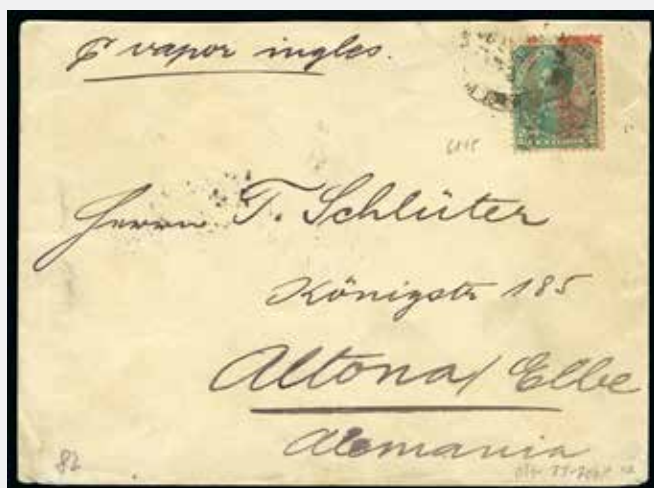 p. vapor ingles.
Herrn T. Schlüter
Königstr 185
Altona/Elbe
Alemania
82